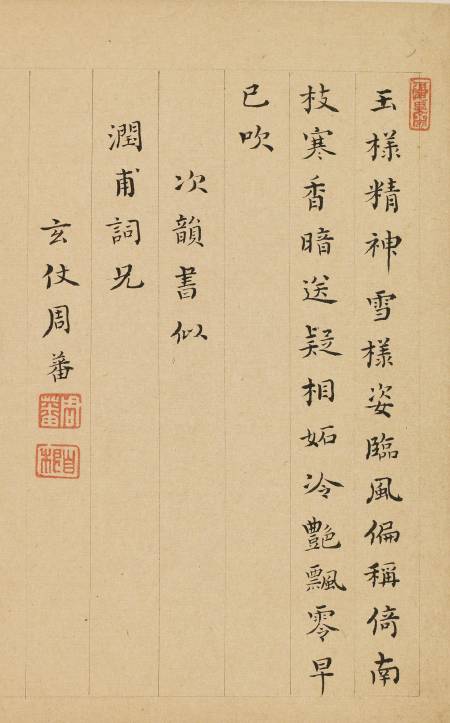 玉樣精神雪樣姿臨風偏稱倚南
枝寒香暗送疑相妬冷艷飄零早
已吹
次韻書似
潤甫詞兄
玄仗周蕃
周蕃